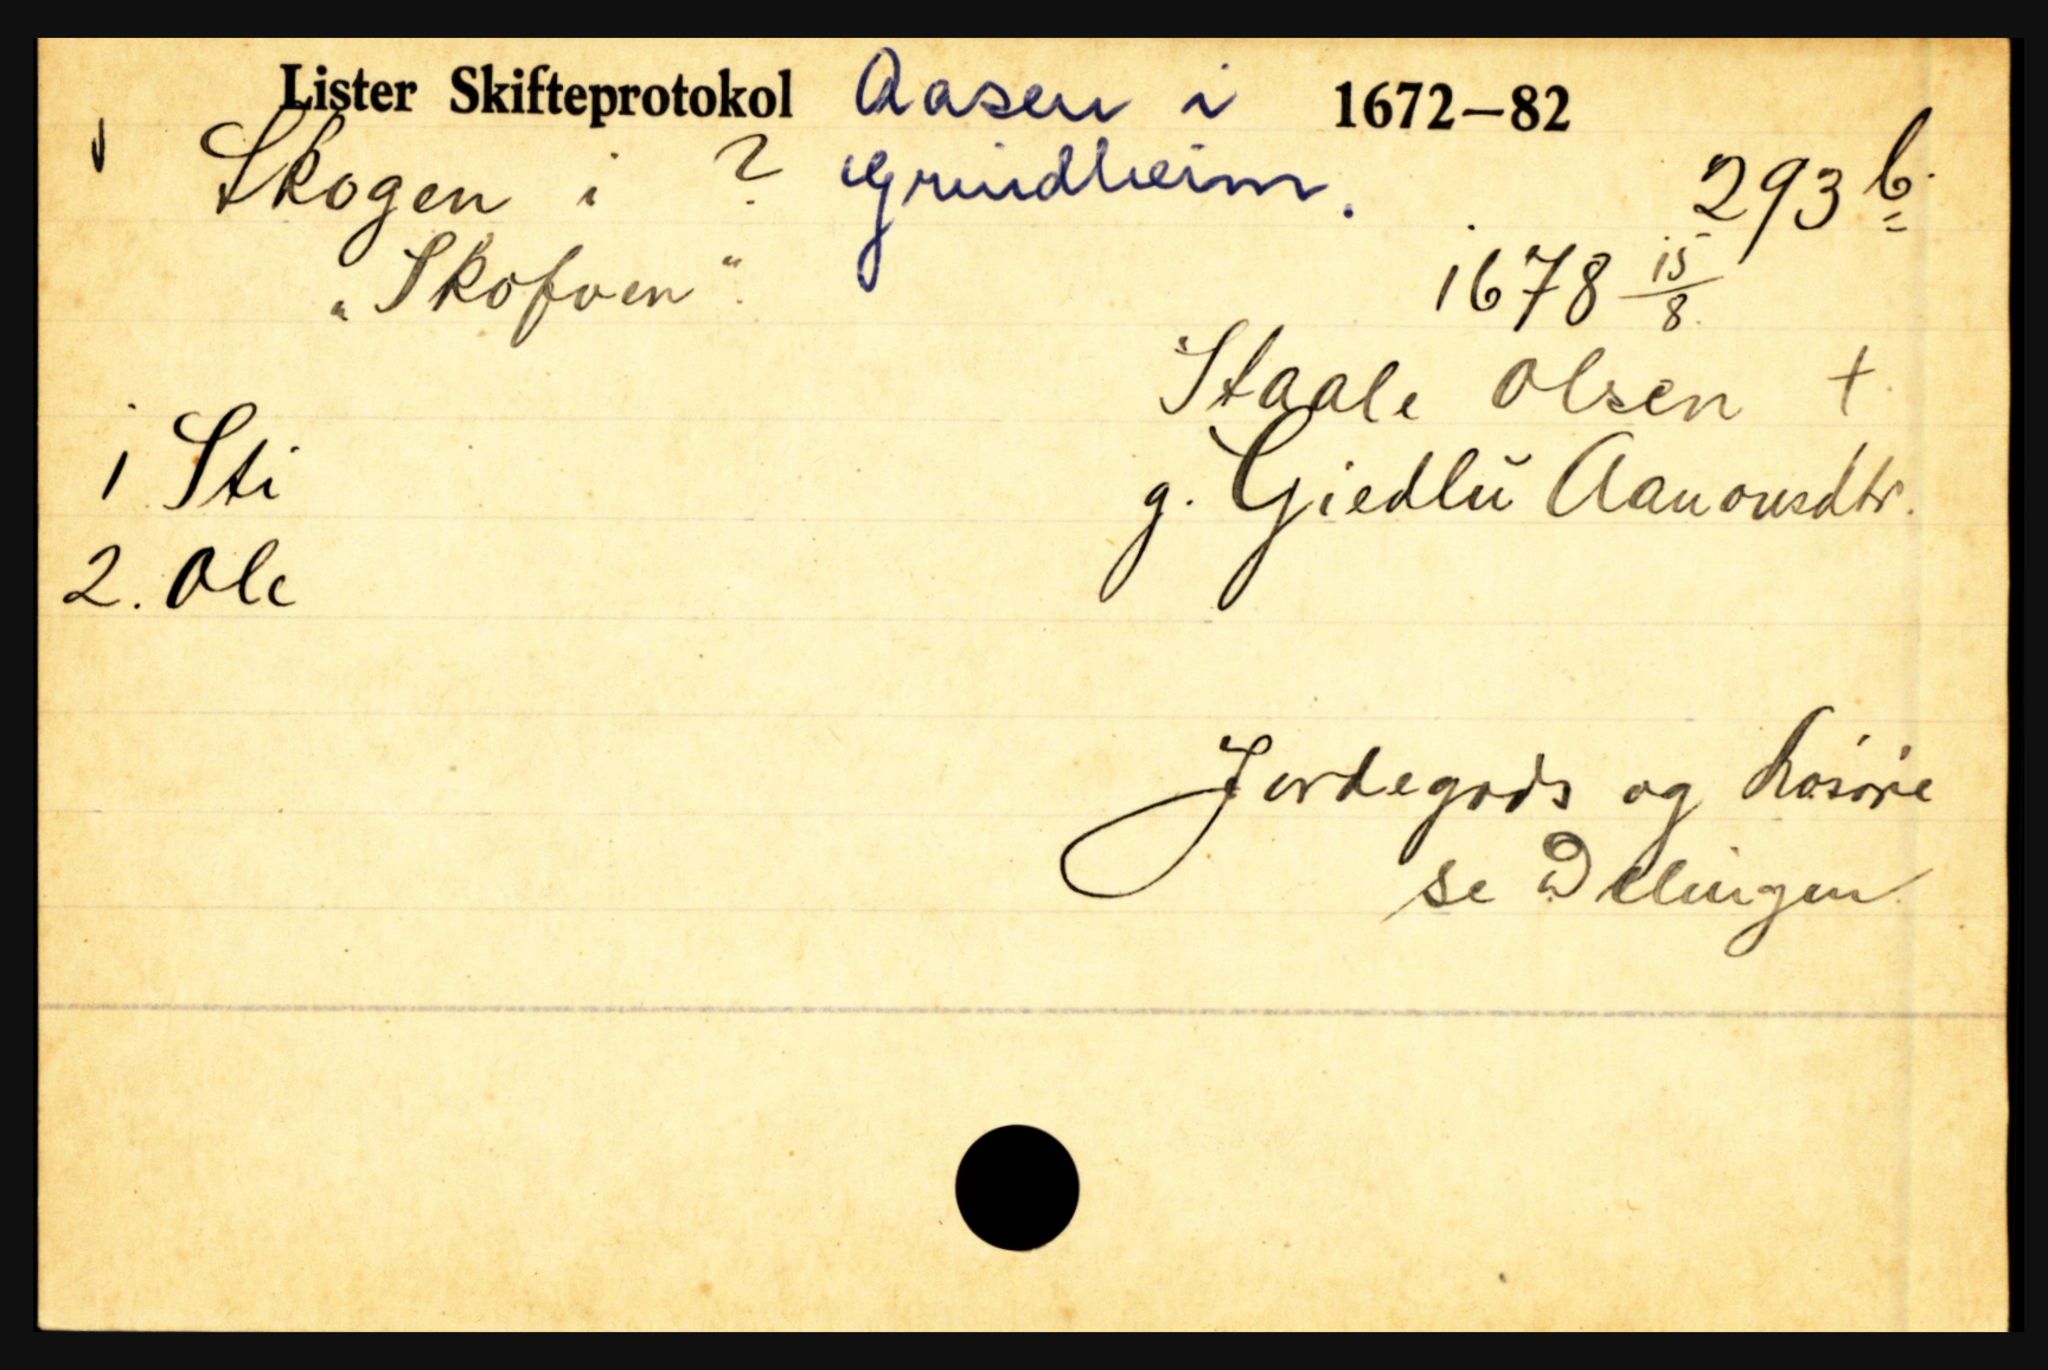 Lister Skifteprotokol Aasen i 1672–82
Skogen i ? Grindheim. 293 b.
„Skofven“.
1678 15/8.
Staale Olsen †.
1 Sti
g. Giedlŭ Aanonsdtr.
2. Ole
Jordegods og Løsøre
se Delingen